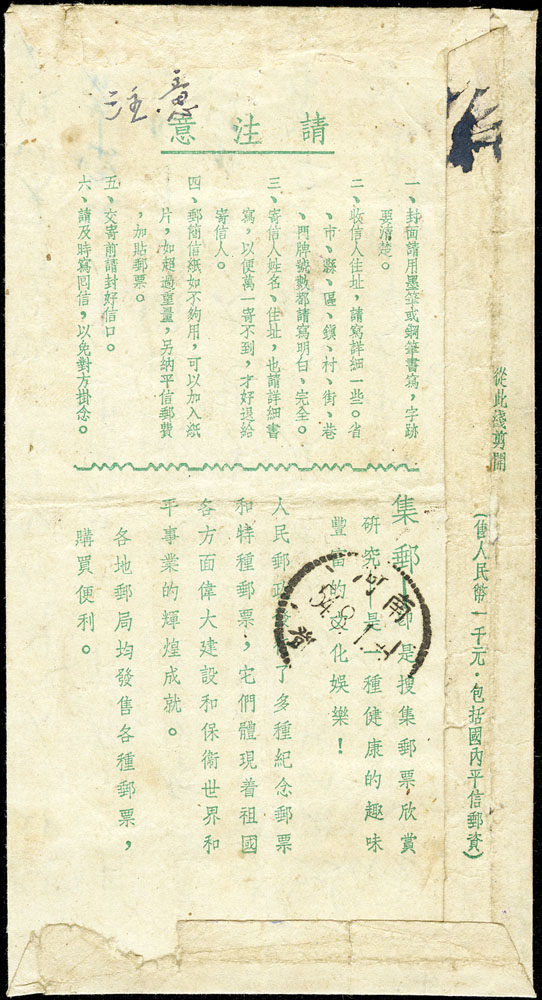 注意
請注意
一、封面請用墨筆或鋼筆書寫，字跡
要清楚。
二、收信人住址，請寫詳細一些。省
、市、縣、區、鎮、村、街、巷
、門牌號數都請寫明白、完全。
三、寄信人姓名、住址，也請詳細書
寫，以便萬一寄不到，才好退給
寄信人。
四、郵簡信紙如不夠用，可以加入紙
片，如超過重量，另納平信郵費
，加貼郵票。
五、交寄前請封好信口。
六、請及時寫囘信，以免對方掛念。
從此綫剪開
（售人民幣一千元·包括國內平信郵資）
集郵 是搜集郵票欣賞
研究 是一種健康的趣味
豐富的文化娛樂！
人民郵政 了多種紀念郵票
和特種郵票，它們體現着祖國
各方面偉大建設和保衛世界和
平事業的輝煌成就。
各地郵局均發售各種郵票，
購買便利。
河南
54.8.